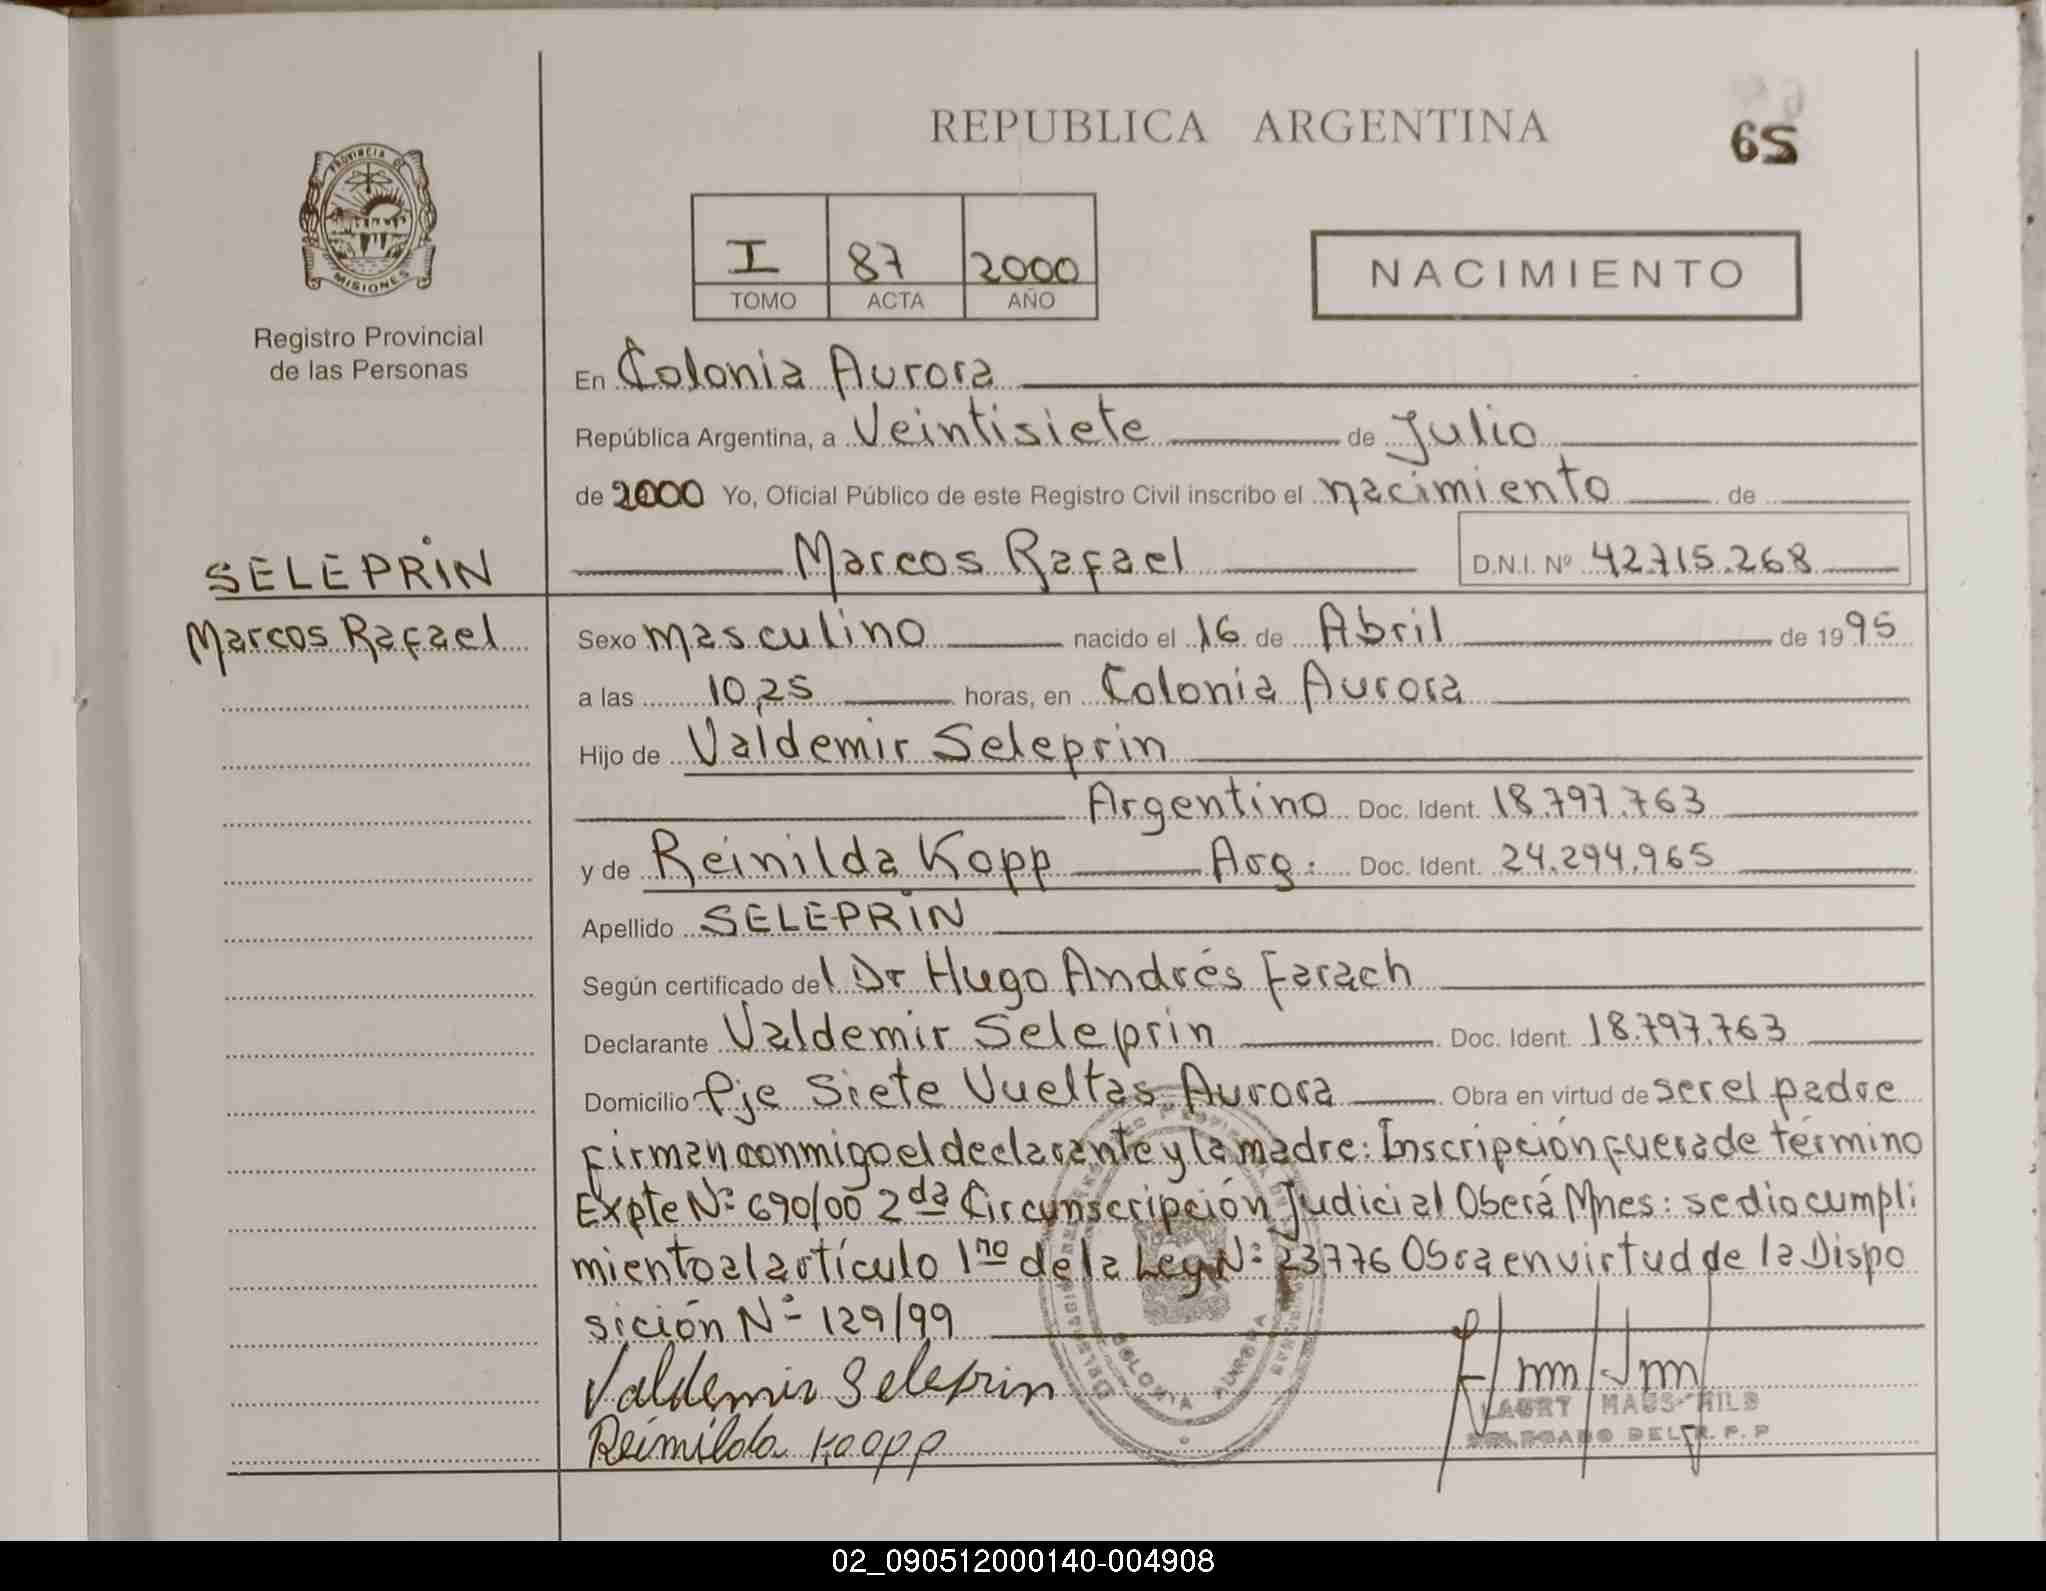 REPUBLICA ARGENTINA
65
PROVINCIA D
MISIONES
Registro Provincial
de las Personas
I 87 2000
TOMO ACTA AÑO
NACIMIENTO
En Colonia Aurora
República Argentina, a Veintisiete de Julio
de 2000 Yo, Oficial Público de este Registro Civil inscribo el nacimiento de
Marcos Rafael D.N.I. Nº 42.715.268
SELEPRIN
Marcos Rafael
Sexo masculino nacido el 16 de Abril de 1995
a las 10,25 horas, en Colonia Aurora
Hijo de Valdemir Seleprin
Argentino Doc. Ident. 18.797.763
y de Reinilda Kopp Arg: Doc. Ident. 24.294.965
Apellido SELEPRIN
Según certificado del Dr Hugo Andrés Farach
Declarante Valdemir Seleprin Doc. Ident. 18.797.763
Domicilio Pje Siete Vueltas Aurora Obra en virtud de ser el padre
firman conmigo el declarante y la madre: Inscripción fuera de término
Expte Nº 690/00 2da Circunscripción Judicial Oberá Mnes: se dio cumpli
miento al artículo 1ro de la Ley Nº 23776 Obra en virtud de la Dispo
sición Nº 129/99
Valdemir Seleprin
Reinilda Koopp
COLONIA AURORA
DELEGADO DEL R. P. P
02_090512000140-004908